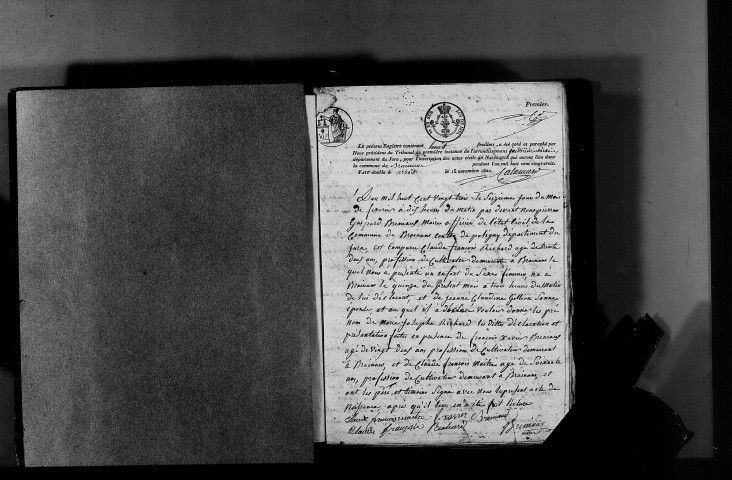 Premier.
Le présent Registre contenant huit feuillets, a été coté et paraphé par
Nous président du Tribunal de première instance de l'arrondissement
département du Jura, pour l'inscription des actes civils de Naissances qui auront lieu dans
la commune de Brainans pendant l'an mil huit cent vingt-trois.
Fait double à Arbois le 15 novembre 1822.
L'an mil huit cent vingt trois le Seizieme jour du mois
de fevrier à dix heures du matin par devant nous
Gaspard Brenians Maire officier de l'état civil de la
Commune de Brainans canton de poligny département du
Jura, est Comparu Claude françois Richard agé de trente
deux ans, profession de Cultivateur demeurant à Brainans le
quel nous a présenté un enfant du Sexe féminin né à
Brainans le quinze du présent mois à trois heures du matin
de lui déclarant, et de jeanne Claudine Gollion Sonne
épouse et au quel il a déclaré vouloir donner les pré
nom de Marie Josephe Richard les dittes déclaration et
présentation faites en présence de françois Xavier Brenians
agé de vingt deux ans profession de Cultivateur demeurant
à Brainans, et de Claude françois Maitre agé de Soixante
ans, profession de Cultivateur demeurant à Brainans, et
ont les père et témoins Signé avec nous le présent acte de
Naissance, après qu'il leur en a été fait lecture
Claude françois maitre Xavier Brenians
Claude françois Richard Brenians
maire